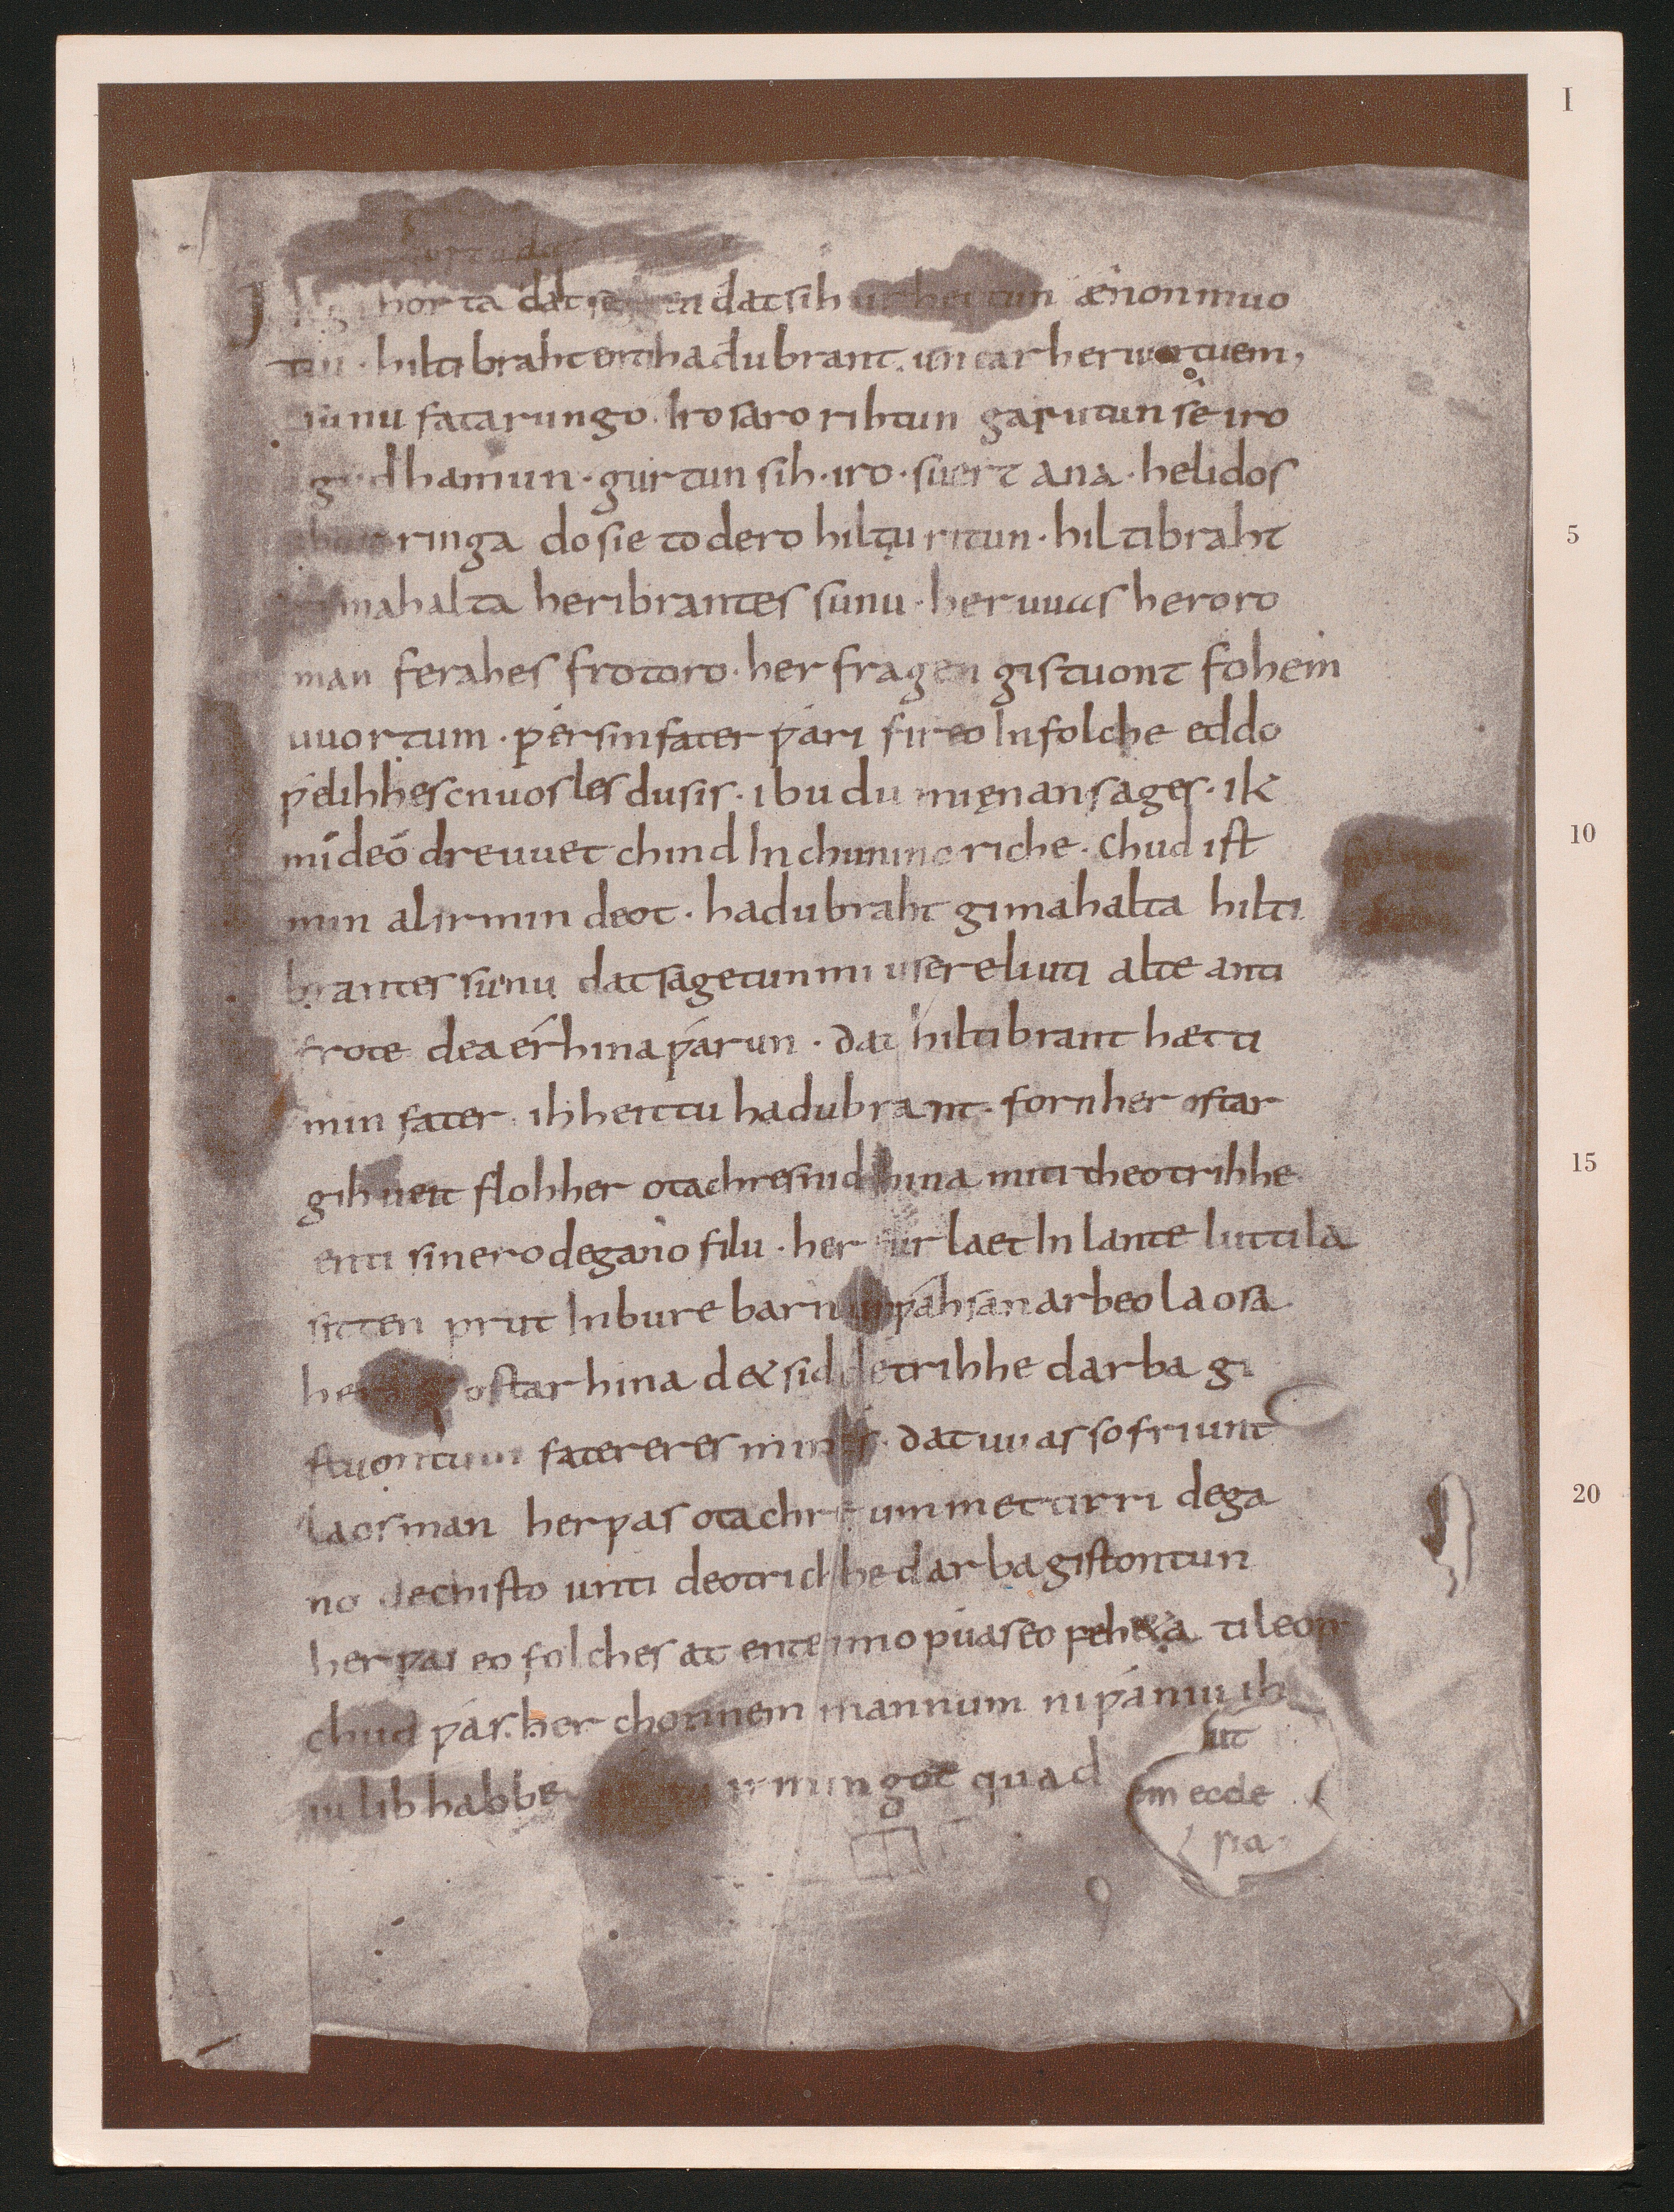 I
Ik gihorta dat seggen dat sih urhettun ænon muo
tin · hiltibraht enti hadubrant · untar heriuntuem,
sunu fatarungo · Iro saro rihtun garutun sê iro
gudhamun · gurtun sih · iro · suert ana · helidos
ubar ringa do sie to dero hiltu ritun · hiltibraht
gimahalta heribrantes sunu · her uuas heroro
man ferahes frotoro · her fragen gistuont fohem
uuortum · ƿer sin fater ƿari fireo In folche eddo
ƿelihhes cnuosles du sis · ibu du mi ęnan sages · ik
mi deo dre uuet chind In chunincriche · chud ist
min al irmin deot · hadubraht gimahalta hilti
brantes sunu dat sagetun mi usere liuti alte anti
frote dea érhina ƿarun · dat hiltibrant hætti
min fater · ih heittu hadubrant · forn her ostar
gihueit floh her otachres nid hina miti theotrihhe
enti sinero degano filu · her fur laet In lante luttila
sitten prut In bure barn unƿahsan arbeo laosa
her raet ostar hina d& sid detrihhe darba gi
stuontum fatereres mines · dat uuas so friunt
laos man her ƿas otachre ummet tirri dega
no dechisto unti deotrichhe darba gistontun
her ƿas eo folches at ente imo ƿuas eo feh&a ti leop
chud ƿas · her chonnem mannum ni ƿaniu ih
iu lib habbe · ƿettu irmingot quad
5
10
15
20